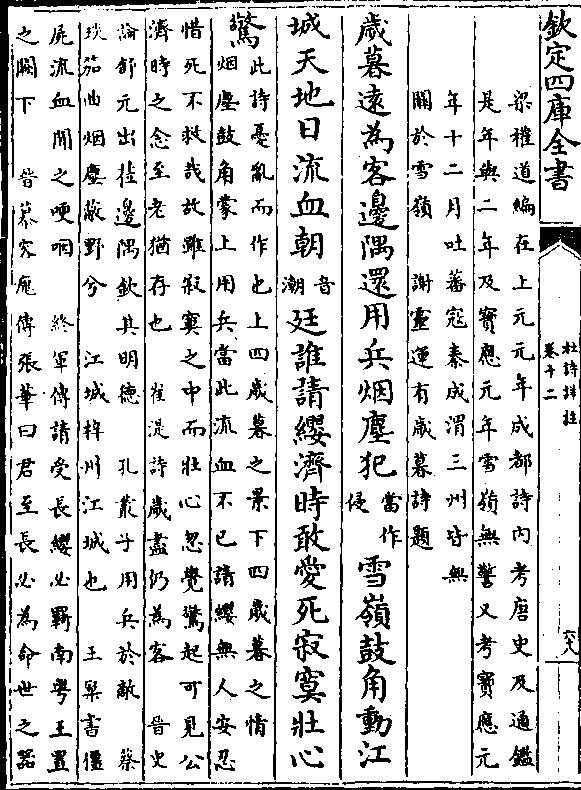 欽定四庫全書
杜詩詳註
卷十二
六八
梁權道編在上元元年成都詩內考唐史及通鑑
是年與二年及寶應元年雪嶺無警又考寶應元
年十二月吐蕃寇秦成渭三州皆無
關於雪嶺　謝靈運有歲暮詩題
歲暮遠為客邊隅還用兵烟塵犯當作侵雪嶺鼓角動江
城天地日流血朝音潮廷誰請纓濟時敢愛死寂寞壯心
驚此詩憂亂而作也上四歲暮之景下四歲暮之情
烟塵鼓角蒙上用兵當此流血不已請纓無人安忍
惜死不救哉故雖寂寞之中而壯心忽覺驚起可見公
濟時之念至老猶存也　崔湜詩歲盡仍為客　晉史
論舒元出莅邊隅欽其明德　孔叢子用兵於敵　蔡
琰笳曲烟塵蔽野兮　江城梓州江城也　王粲書僵
屍流血聞之哽咽　終軍傳請受長纓必羈南粵王置
之闕下　晉慕容廆傳張華曰君至長必為命世之器